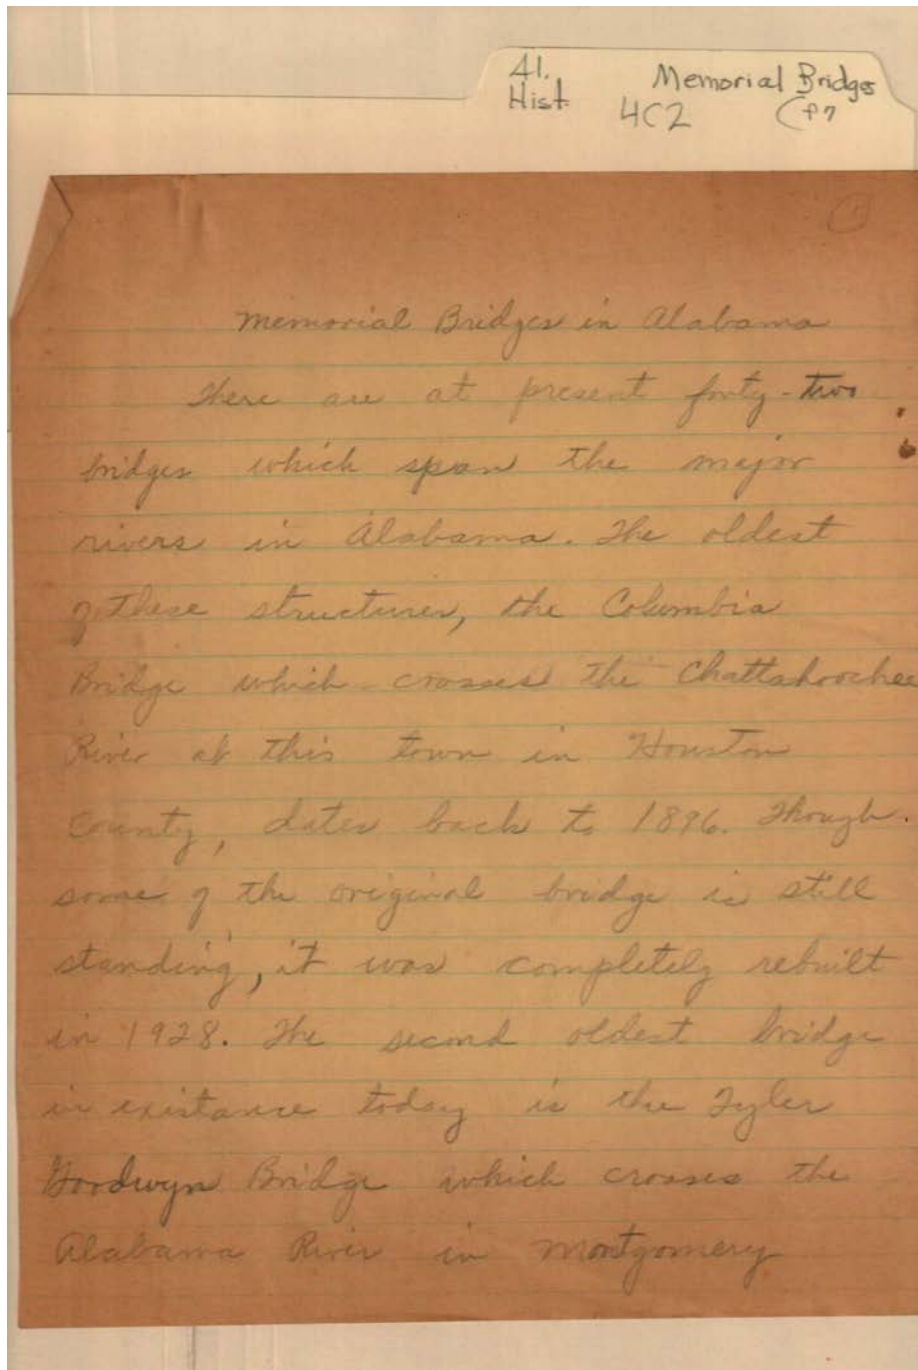 41. Memorial Bridges
Hist. 4C2 (P7
1
Memorial Bridges in Alabama
There are at present forty-two
bridges which span the major
rivers in Alabama. The oldest
of these structures, the Columbia
Bridge which crosses the Chattahoochee
River at this town in Houston
County, dates back to 1896. Though
some of the original bridge is still
standing, it was completely rebuilt
in 1928. The second oldest bridge
in existance today is the Tyler
Goodwyn Bridge which crosses the
Alabama River in Montgomery